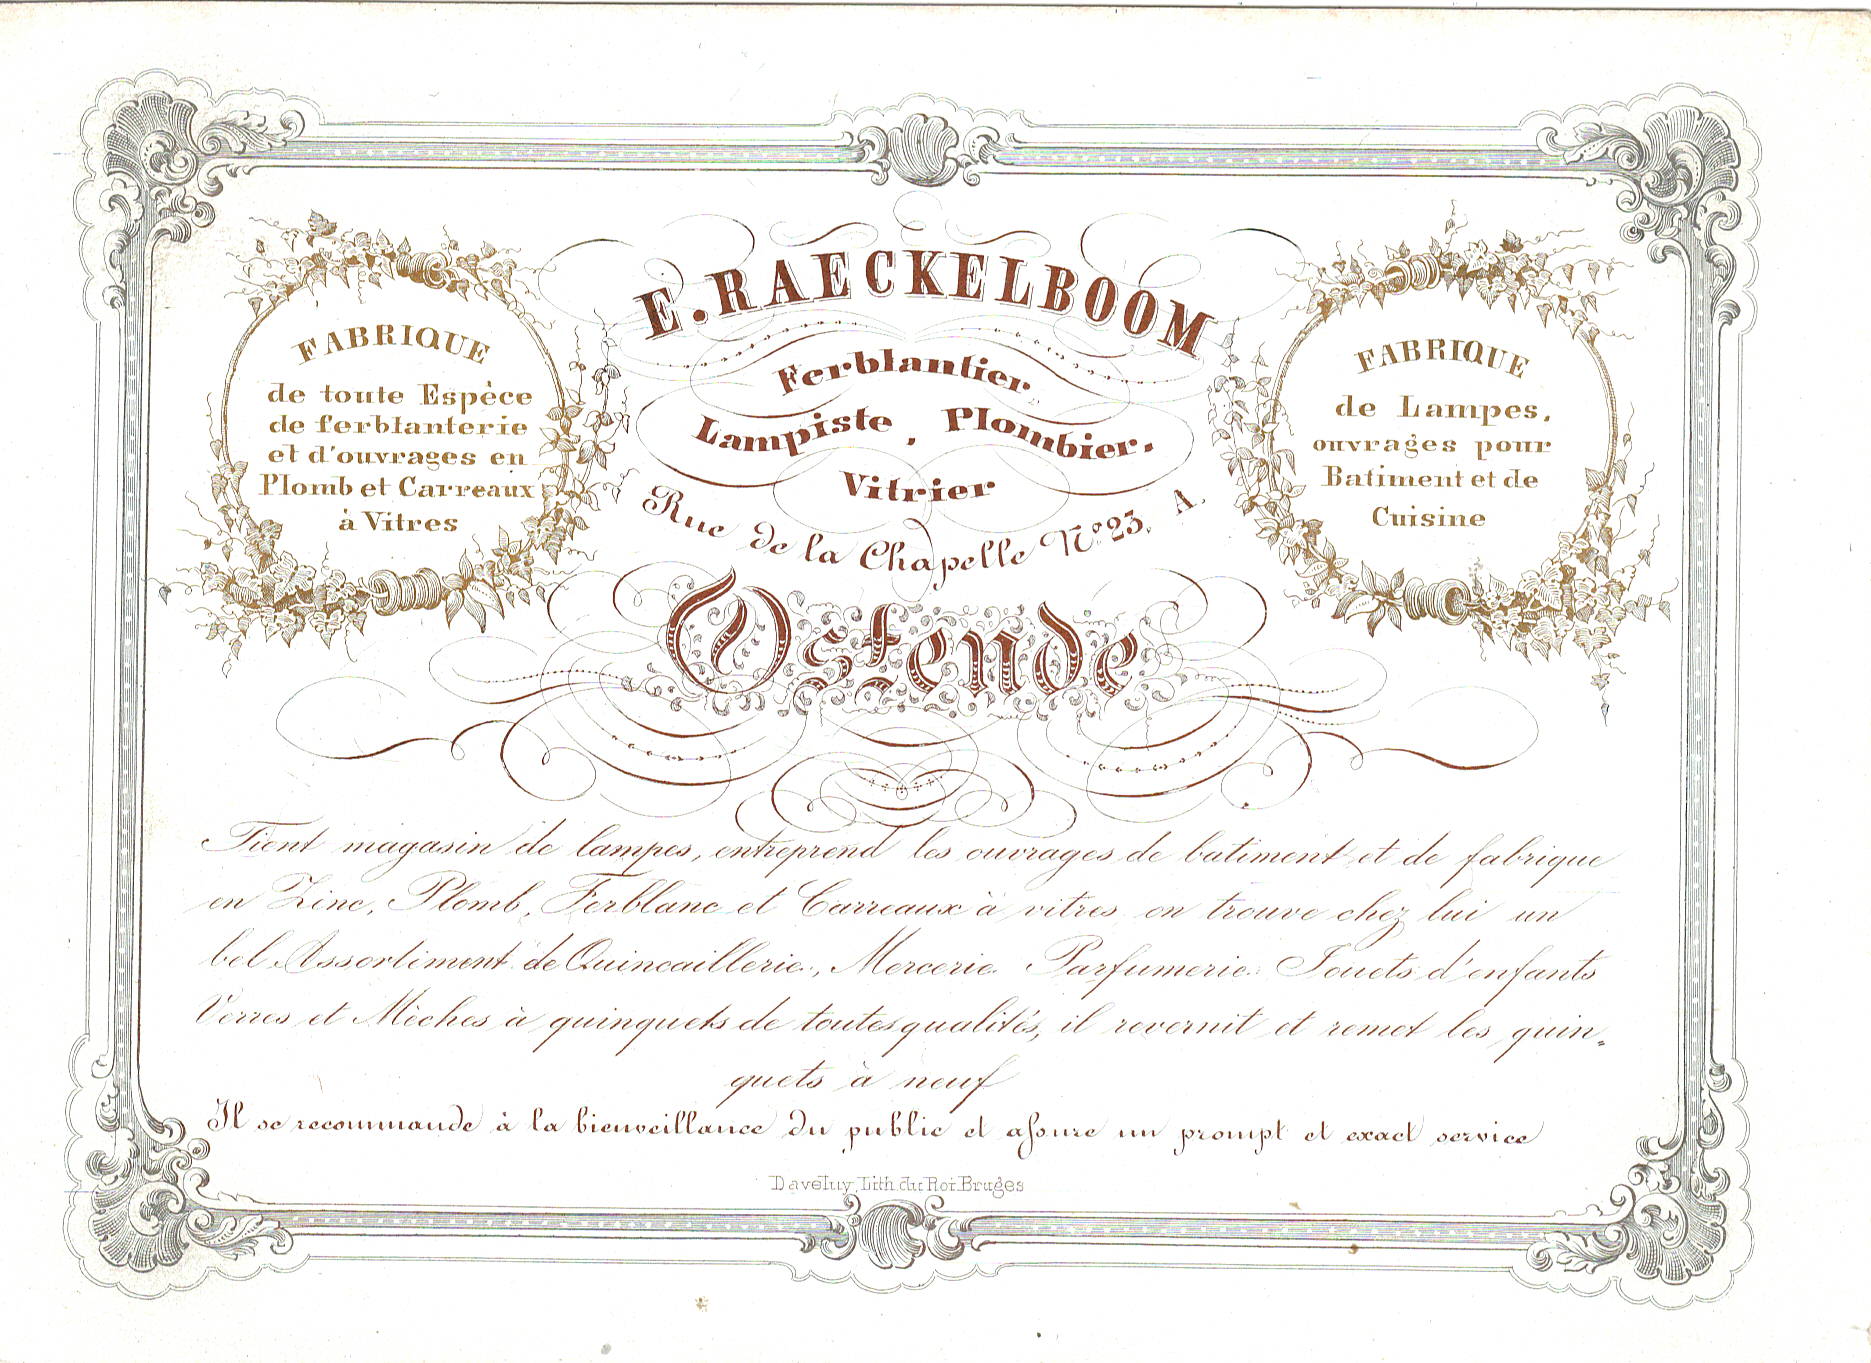 E. RAECKELBOOM
Ferblantier,
Lampiste, Plombier,
Vitrier
Rue de la Chapelle No. 23. A.
Ostende
FABRIQUE
de toute Espèce
de ferblanterie
et d'ouvrages en
Plomb et Carreaux
à Vitres
FABRIQUE
de Lampes,
ouvrages pour
Batiment et de
Cuisine
Tient magasin de lampes, entreprend les ouvrages de batiment et de fabrique
en Zinc, Plomb, Ferblanc et Carreaux à vitres on trouve chez lui un
bel Assortiment de Quincaillerie, Mercerie Parfumerie Jouets d'enfants
Verres et Mèches à quinquets de toutes qualités, il revernit et remet les quin-
quets à neuf
Il se recommande à la bienveillance du public et assure un prompt et exact service
Daveluy, Lith. du Roi Bruges